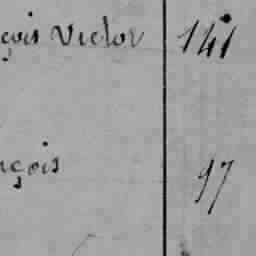 çois Victor 141
nçois 97